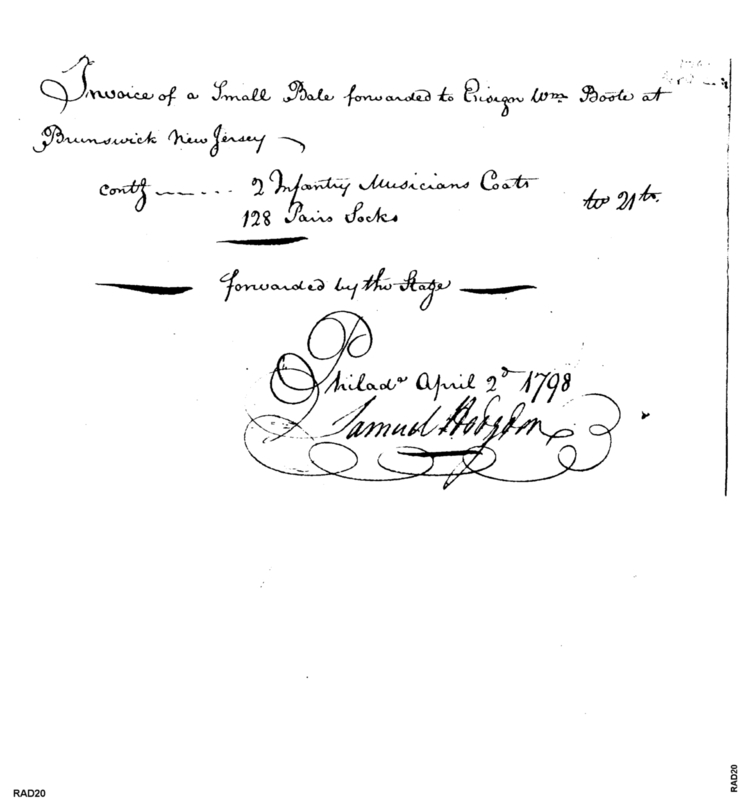 Invoice of a Small Bale forwarded to Ensign Wm Boote at
Brunswick New Jersey
contg 2 Infantry Musicians Coats
128 Pairs Socks
forwarded by the Stage
Philada April 2d 1798
Samuel Hodgdon
RAD20
RAD20